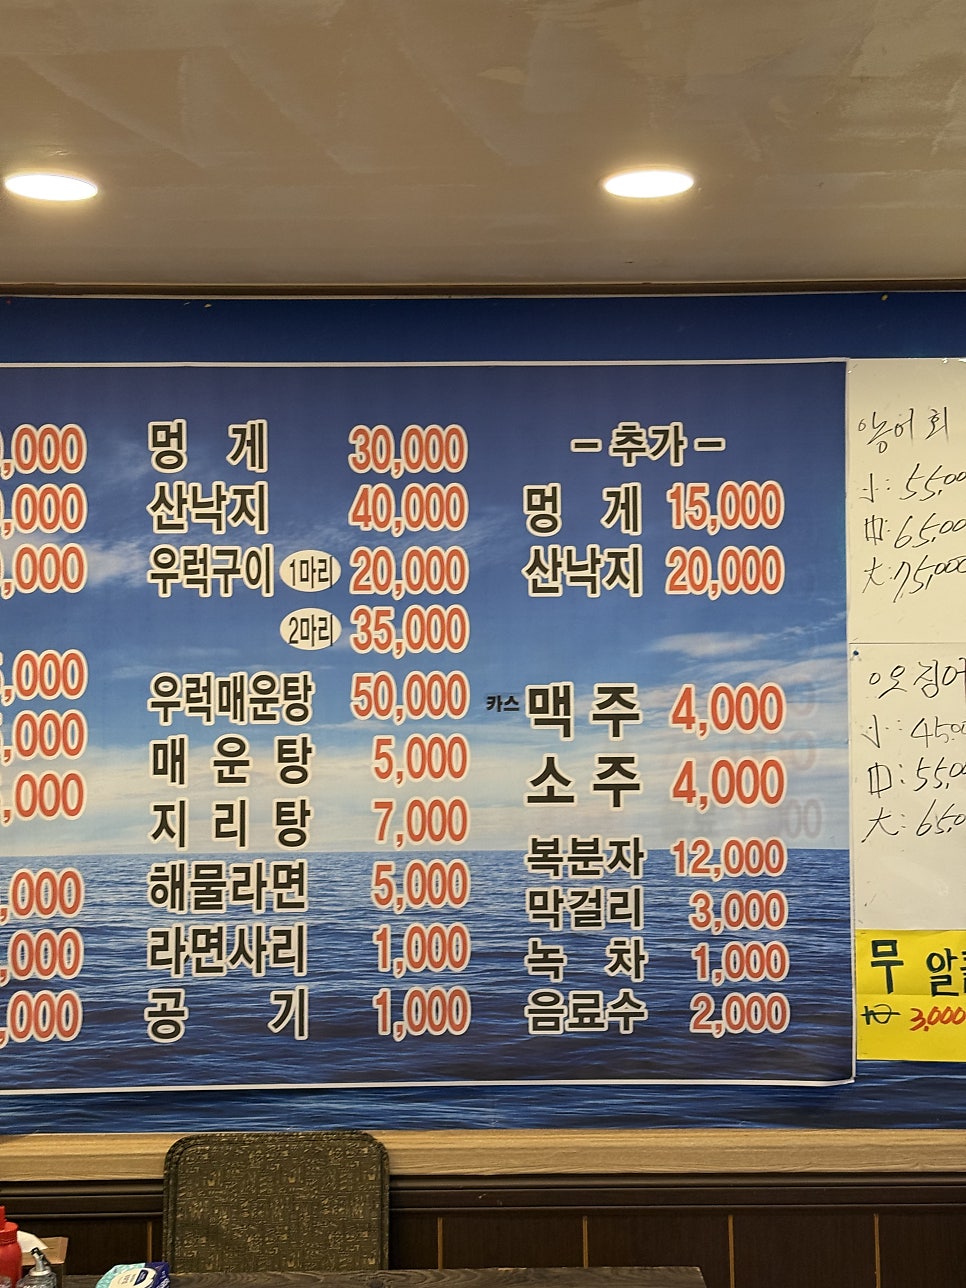 ,000
,000
,000
,000
,000
,000
,000
,000
,000
멍게 30,000
산낙지 40,000
우럭구이 1마리 20,000
2마리 35,000
우럭매운탕 50,000
매운탕 5,000
지리탕 7,000
해물라면 5,000
라면사리 1,000
공기 1,000
– 추가 –
멍게 15,000
산낙지 20,000
카스 맥주 4,000
소주 4,000
복분자 12,000
막걸리 3,000
녹차 1,000
음료수 2,000
농어회
小: 55,00
中: 65,00
大: 75,000
오징어
小: 45,0
中: 55,0
大: 65,0
무알
3,000